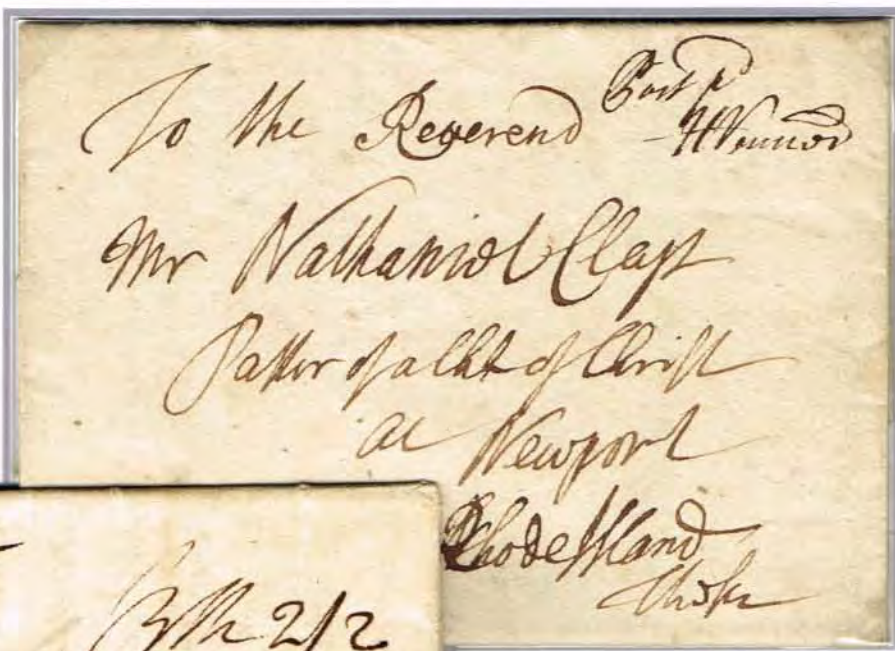 To the Reverend
Post p^d
Mr Nathaniel Clap
Pastor of a Ch: of Christ
at Newport
Rhode Island
2/2